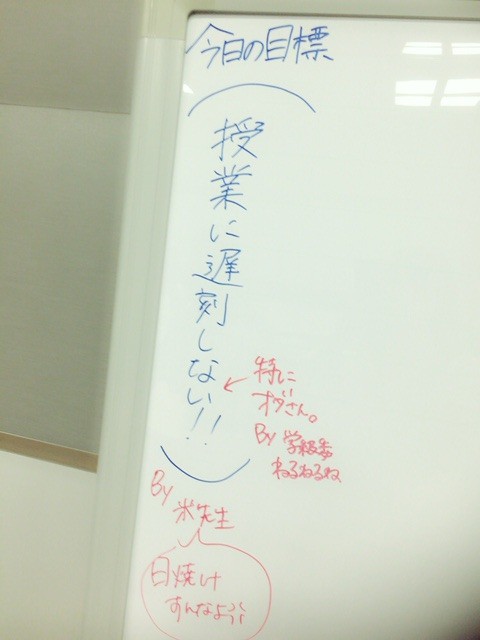 今日の目標
授業に遅刻しない!!
特に
オダさん。
By 学級委
ねるねるね
By
米先生
日焼け
すんなよ